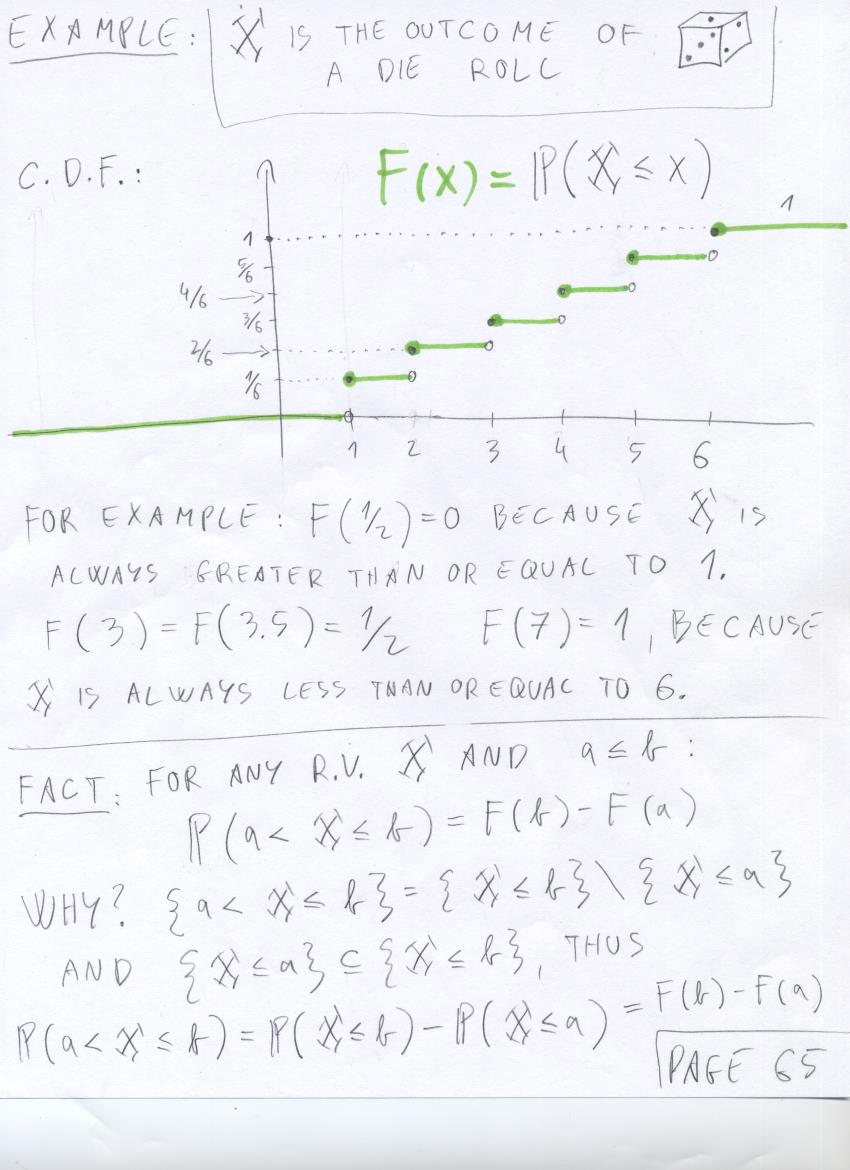 EXAMPLE: X IS THE OUTCOME OF
A DIE ROLL
C.D.F.: F(X) = P(X ≤ x)
1
1
5/6
4/6
3/6
2/6
1/6
1 2 3 4 5 6
FOR EXAMPLE: F(1/2)=0 BECAUSE X IS
ALWAYS GREATER THAN OR EQUAL TO 1.
F(3)=F(3.5)=1/2 F(7)=1, BECAUSE
X IS ALWAYS LESS THAN OR EQUAL TO 6.
FACT: FOR ANY R.V. X AND a ≤ b:
P(a < X ≤ b) = F(b) - F(a)
WHY? {a < X ≤ b} = {X ≤ b} \ {X ≤ a}
AND {X ≤ a} ⊆ {X ≤ b}, THUS
P(a < X ≤ b) = P(X ≤ b) - P(X ≤ a) = F(b) - F(a)
PAGE 65